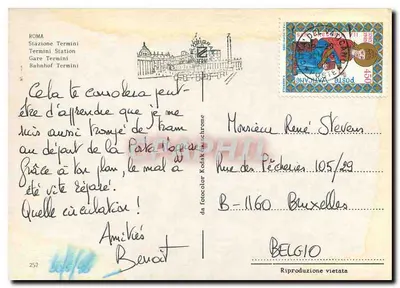 ROMA
Stazione Termini
Termini Station
Gare Termini
Bahnhof Termini
Cela te consolera peut-
être d'apprendre que je me
suis aussi trompé de tram
au départ de la
Grâce à ton plan, le mal a
été vite réparé.
Quelle circulation !
Amitiés
Benoît
252
da fotocolor Kodak Ektachrome
POSTE
450
Monsieur René Stevens
Rue des Pêcheries 105/29
B-1160 Bruxelles
BELGIO
Riproduzione vietata